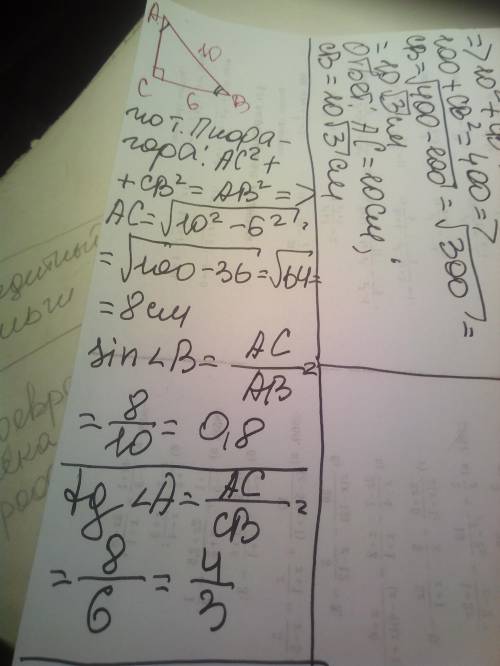 A
10
C
6
B
по т. Пифа-
гора: AC²+
+ CB² = AB² =>
AC = √10² - 6² =
= √100 - 36 = √64 =
= 8 см
sin ∠B = AC/AB =
= 8/10 = 0,8
tg ∠A = AC/CB =
= 8/6 = 4/3
=> 10² +
100 + CB² = 400 =>
CB = √400 - 100 = √300 =
= 10√3 см
Ответ: AC = 10 см;
CB = 10√3 см